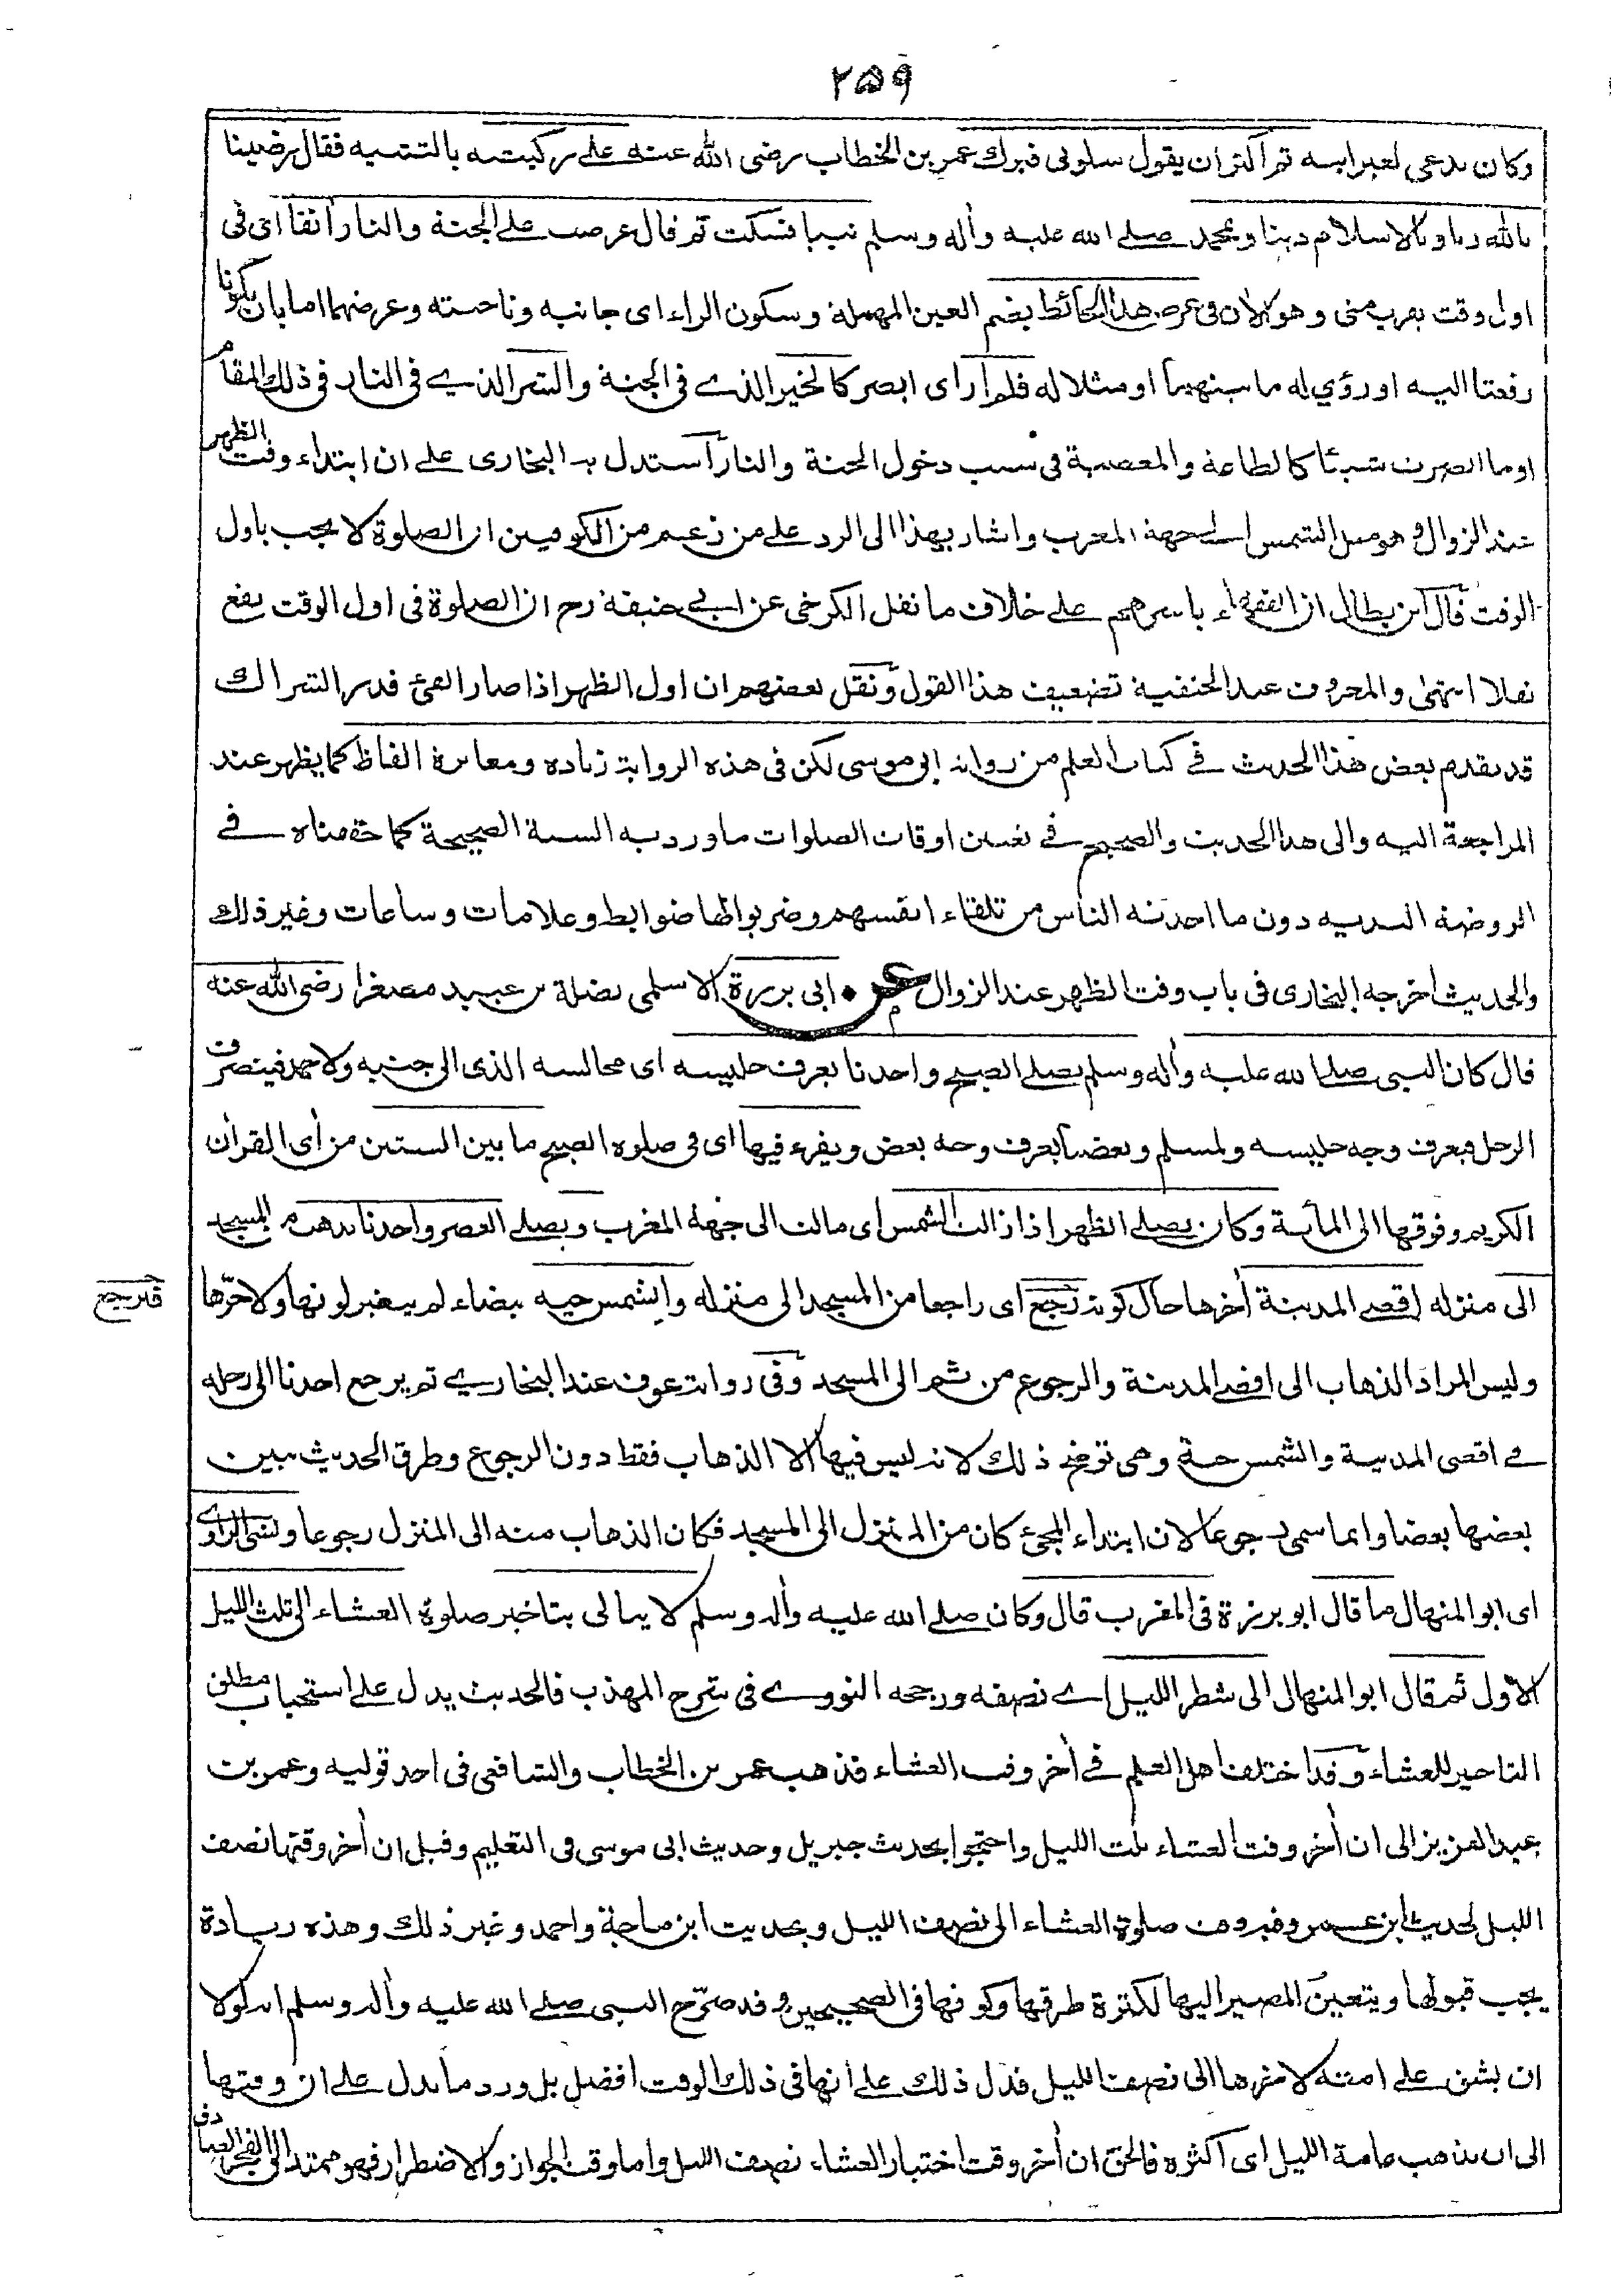 ٢٥٩
وكان يدعى لغير ابيه ثم اكثر ان يقول سلونى فبرك عمر بن الخطاب رضى الله عنه على ركبتيه بالتثنيه فقال رضينا
بالله ربا وبالاسلام دينا وبمحمد صلے الله عليه وأله وسلم نبيا فسكت ثم قال عرضت علے الجنة والنار أنفا اى فى
اول وقت يقرب منى وهو الأن فى عرض هذا الحائط بضم العين المهملة وسكون الراء اى جانبه وناحيته وعرضهما اما بان يكونا
رفعتا اليه او زوي له ما بينهما او مثلا له فلم أر اى ابصر كالخير الذے فى الجنة والشر الذے فى النار فى ذلك المقام
او ما ابصرت شيئا كالطاعة والمعصية فى سبب دخول الجنة والنار أستدل به البخارى علے ان ابتداء وقت الظهر
عند الزوال وهو ميل الشمس الے جهة المغرب واشار بهذا الى الرد علے من زعم من الكوفيين ان الصلوة لا يجب باول
الوقت قال ابن بطال ان الفقهاء باسرهم علے خلاف ما نقل الكرخى عن ابے حنيفة رح ان الصلوة فى اول الوقت يقع
نفلا انتهى والمعروف عند الحنفية تضعيف هذا القول ونقل بعضهم ان اول الظهر اذا صار الفئ قدر الشراك
قد تقدم بعض هذا الحديث فے كتاب العلم من رواية ابى موسى لكن فى هذه الرواية زيادة ومغايرة الفاظ كما يظهر عند
المراجعة اليه والى هذا الحديث والصحيح فے تعيين اوقات الصلوات ما ورد به السنة الصحيحة كما حققناه فے
الروضة الندية دون ما احدثه الناس من تلقاء انفسهم وضربوا لها ضوابط وعلامات وساعات وغير ذلك
والحديث اخرجه البخارى فى باب وقت الظهر عند الزوال عن ابى برزة الاسلمى نضلة بن عبيد مصغرا رضى الله عنه
قال كان النبى صلے الله عليه وأله وسلم يصلے الصبح واحدنا يعرف جليسه اى مجالسه الذى الى جنبه ولاحمد فينصرف
الرجل فيعرف وجه جليسه ولمسلم وبعضنا يعرف وجه بعض ويقرء فيها اى فى صلوة الصبح ما بين الستين من أى القرأن
الكريم وفوقها الى المائة وكان يصلے الظهر اذا زالت الشمس اى مالت الى جهة المغرب ويصلے العصر واحدنا يذهب من المسجد
الى منزله اقصے المدينة أخرها حال كونه رجع اى راجعا من المسجد الى منزله والشمس حيه بيضاء لم يتغير لونها ولا حرّها
فيرجع
وليس المراد الذهاب الى اقصے المدينة والرجوع من ثم الى المسجد وفى رواية عوف عند البخارے ثم يرجع احدنا الى رحله
فے اقصى المدينة والشمس حية وهى توضح ذلك لانه ليس فيها الا الذهاب فقط دون الرجوع وطرق الحديث يبين
بعضها بعضا وانما سمى رجوعا لان ابتداء المجئ كان من المنزل الى المسجد فكان الذهاب منه الى المنزل رجوعا ونسى الراوے
اى ابو المنهال ما قال ابو برزة فى المغرب قال وكان صلے الله عليه وأله وسلم لا يبالى بتاخير صلوة العشاء الى ثلث الليل
الاول ثم قال ابو المنهال الى شطر الليل اے نصفه ورجحه النووے فى شرح المهذب فالحديث يدل علے استحباب مطلق
التاخير للعشاء وقد اختلف اهل العلم فے أخر وقت العشاء فذهب عمر بن الخطاب والشافعى فى احد قوليه وعمر بن
عبد العزيز الى ان أخر وقت العشاء ثلث الليل واحتجوا بحديث جبريل وحديث ابى موسى فى التعليم وقيل ان أخر وقتها نصف
الليل لحديث ابن عمر وفيه وقت صلوة العشاء الى نصف الليل وبحديث ابن ماجة واحمد وغير ذلك وهذه زيادة
يجب قبولها ويتعين المصير اليها لكثرة طرقها وكونها فى الصحيحين وقد صرّح النبى صلے الله عليه وأله وسلم انه لولا
ان يشق علے امته لاخرها الى نصف الليل فدل ذلك علے انها فى ذلك الوقت افضل بل ورد ما يدل علے ان وقتها
الى ان يذهب عامة الليل اى اكثره فالحق ان أخر وقت اختيار العشاء نصف الليل واما وقت الجواز والاضطرار فهو ممتد الى الفجر الصادق